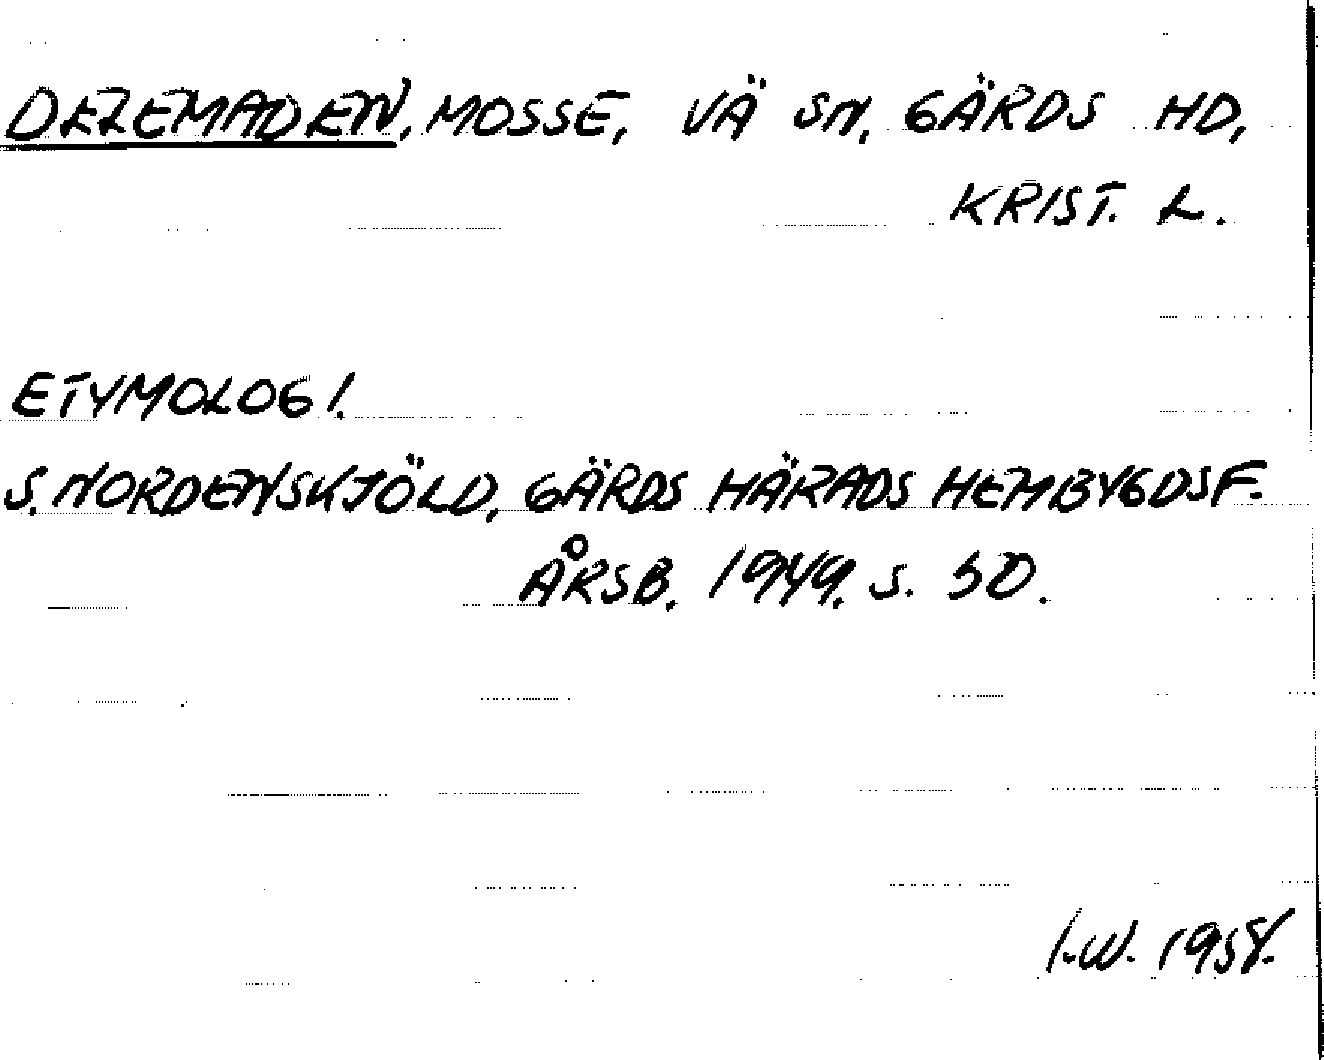 DELEMADEN, MOSSE, VÄ SN, GÄRDS HD,
KRIST. L.
ETYMOLOGI.
S. NORDENSKJÖLD, GÄRDS HÄRADS HEMBYGDSF.
ÅRSB. 1949. S. 50.
I.W. 1958.